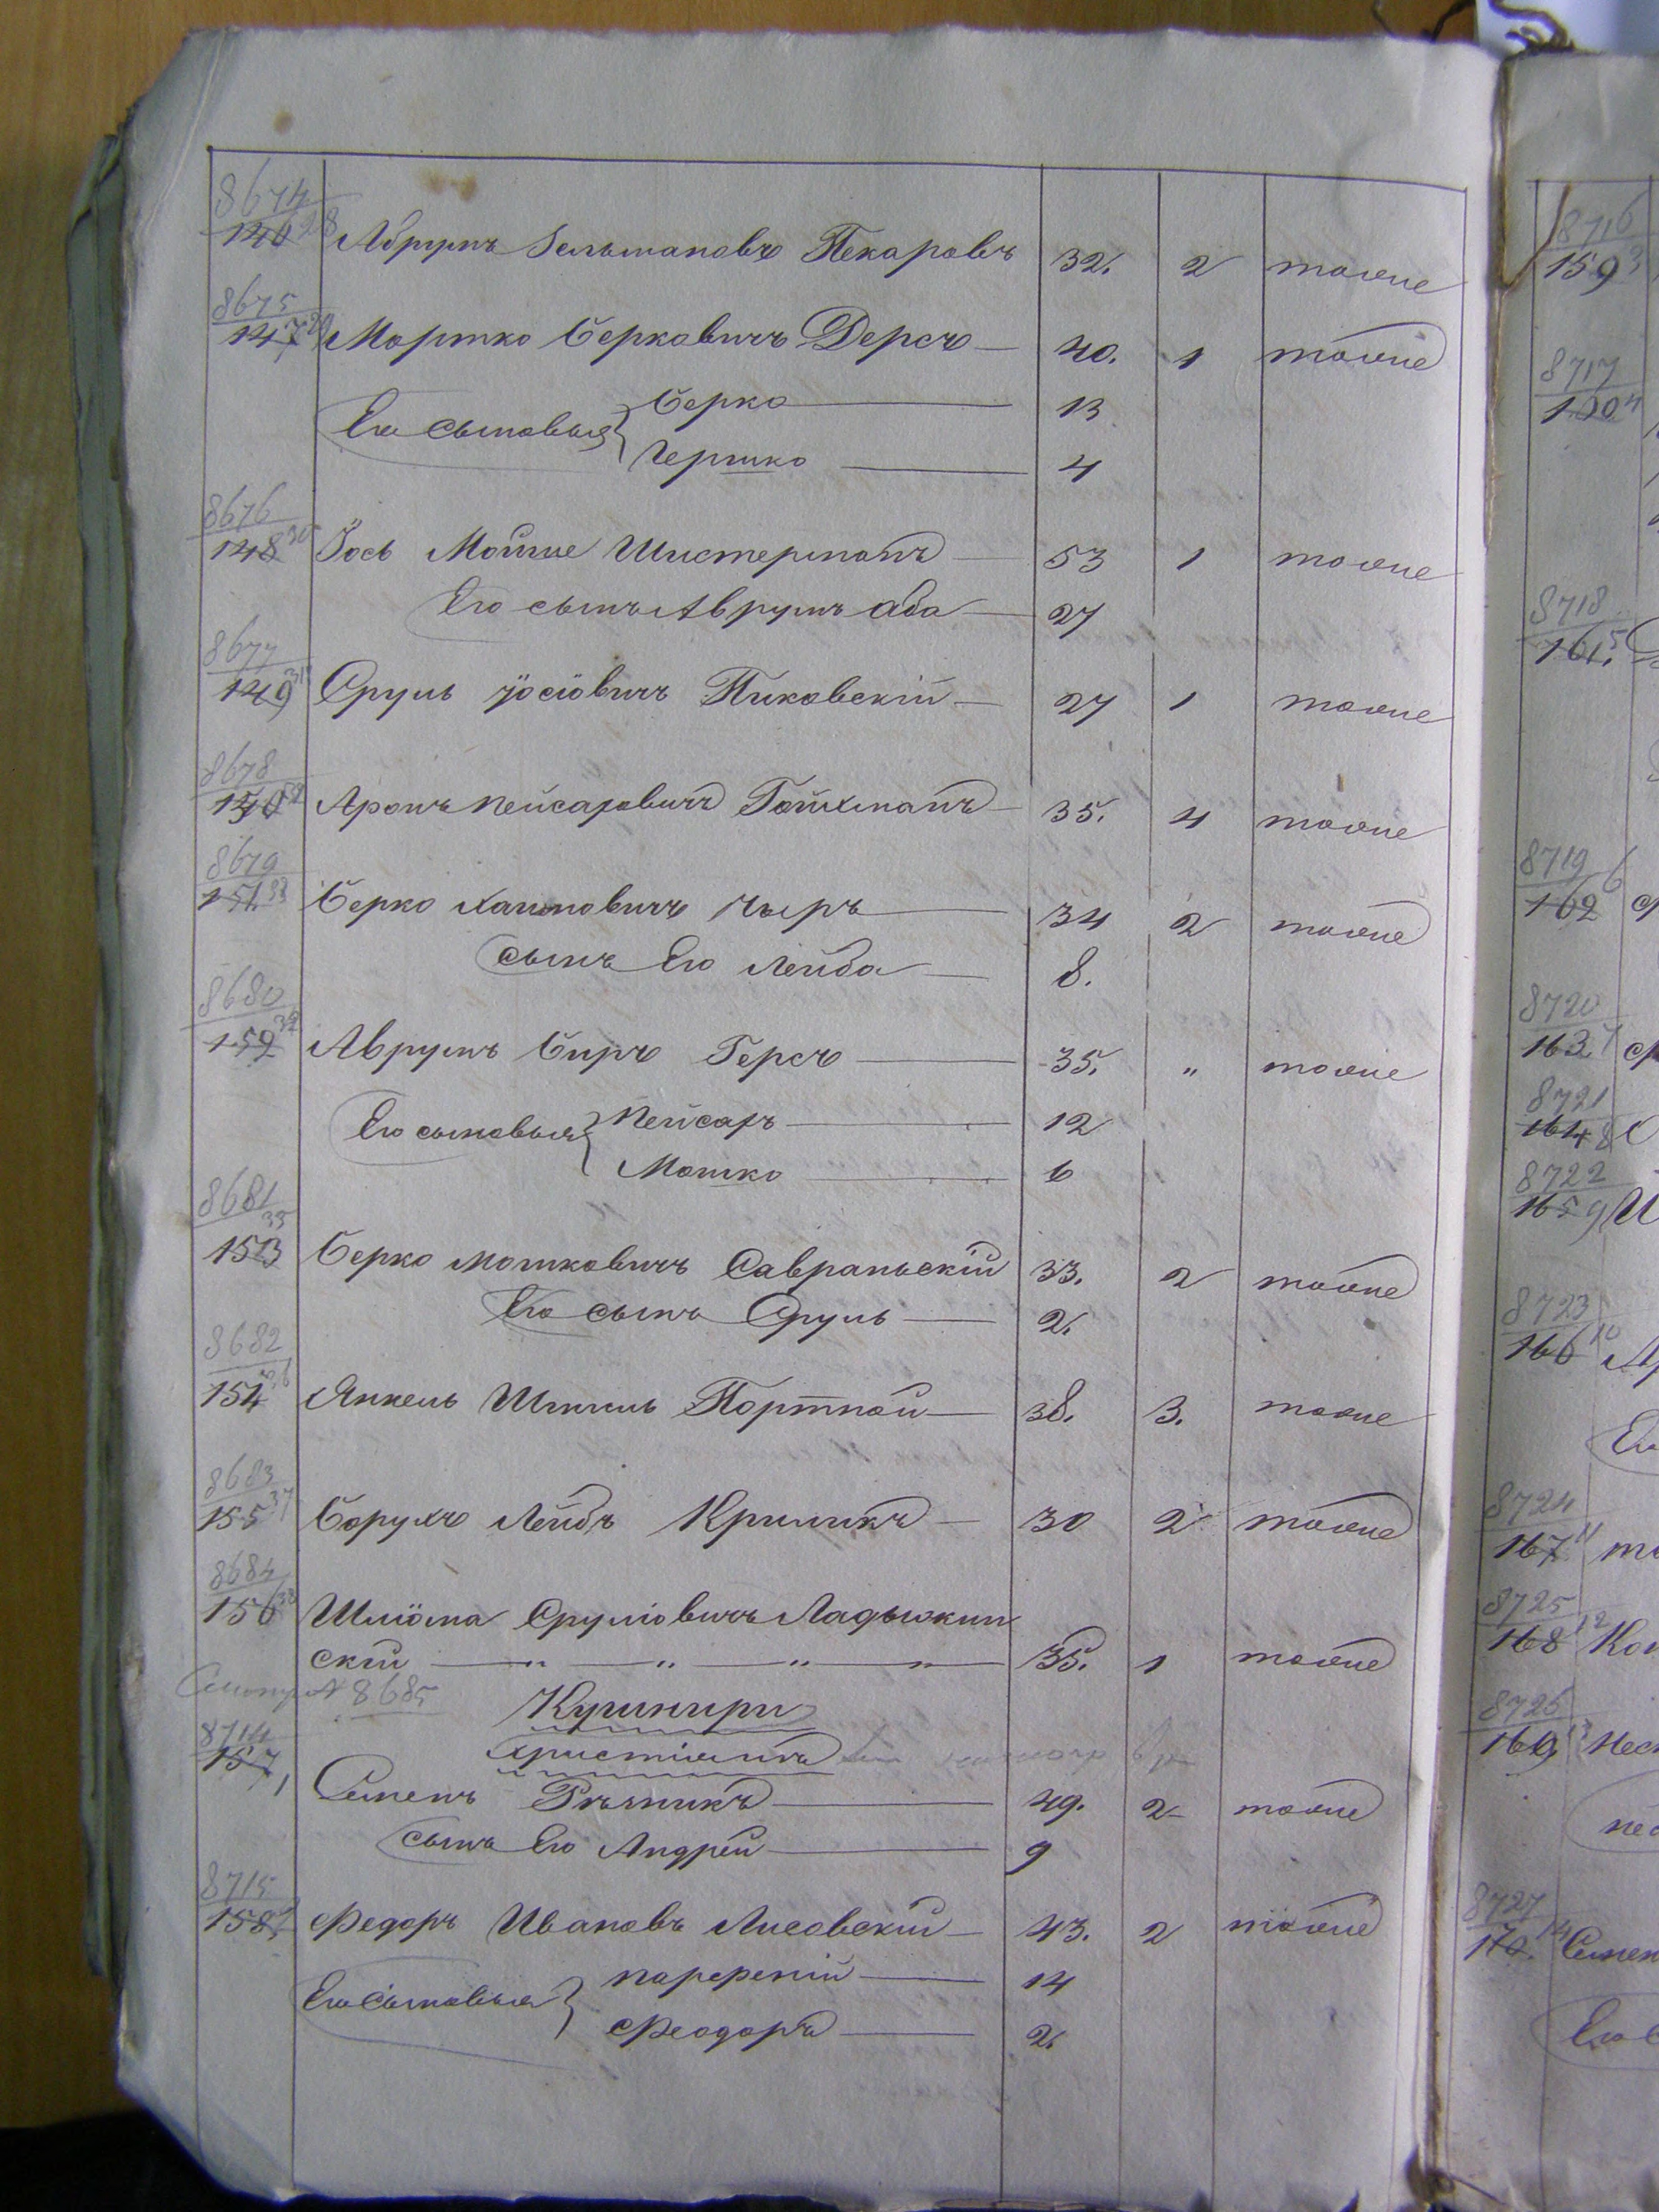 8674
146 28 Абрумъ Зельмановъ Пекаровъ 32. 2 тоже
8675
147 29 Мортко Берковичъ Дерсъ 40. 1 тоже
Его сыновья { Берко 13
Гершко 4
8676
148 30 Іось Мошко Шистерманъ 53 1 тоже
Его сынъ Аврумъ Аба 27
8677
149 31 Сруль Іосіовичъ Пиковскій 27 1 тоже
8678
150 32 Аронъ Пейсаховичъ Гойхманъ 35. 4 тоже
8679
151. 33 Берко Хаимовичъ Чыръ 34 2 тоже
сынъ Его Лейба 8.
8680
152 34 Аврумъ Беръ Герсъ 35. " тоже
Его сыновья { Пейсахъ 12
Мошко 6
8681
153 35 Берко Мошковичъ Савранскій 33. 2 тоже
Его сынъ Сруль 2.
8682
154 36 Янкель Шмиль Портной 38. 3. тоже
8683
155 37 Борухъ Лейбъ Криликъ 30 2 тоже
8684
156 38 Шліома Сруліовичъ Ладыжин
скій — " — " — " — " 35. 1 тоже
8685
Кушнири
христіяинъ
8714
157 1 Семенъ Рѣзникъ 49. 2 тоже
сынъ Его Андрей 9
8715
158. 2 Федоръ Ивановъ Лисовскій 43. 2 тоже
Его сыновья { Парфеній 14
Феодоръ 2.
8716
159 3
8717
160 4
8718
161. 5
8719
162 6
8720
163 7
8721
164 8
8722
165 9
8723
166 10
8724
167 11
8725
168 12
8726
169 13
8727
170. 14 Семен